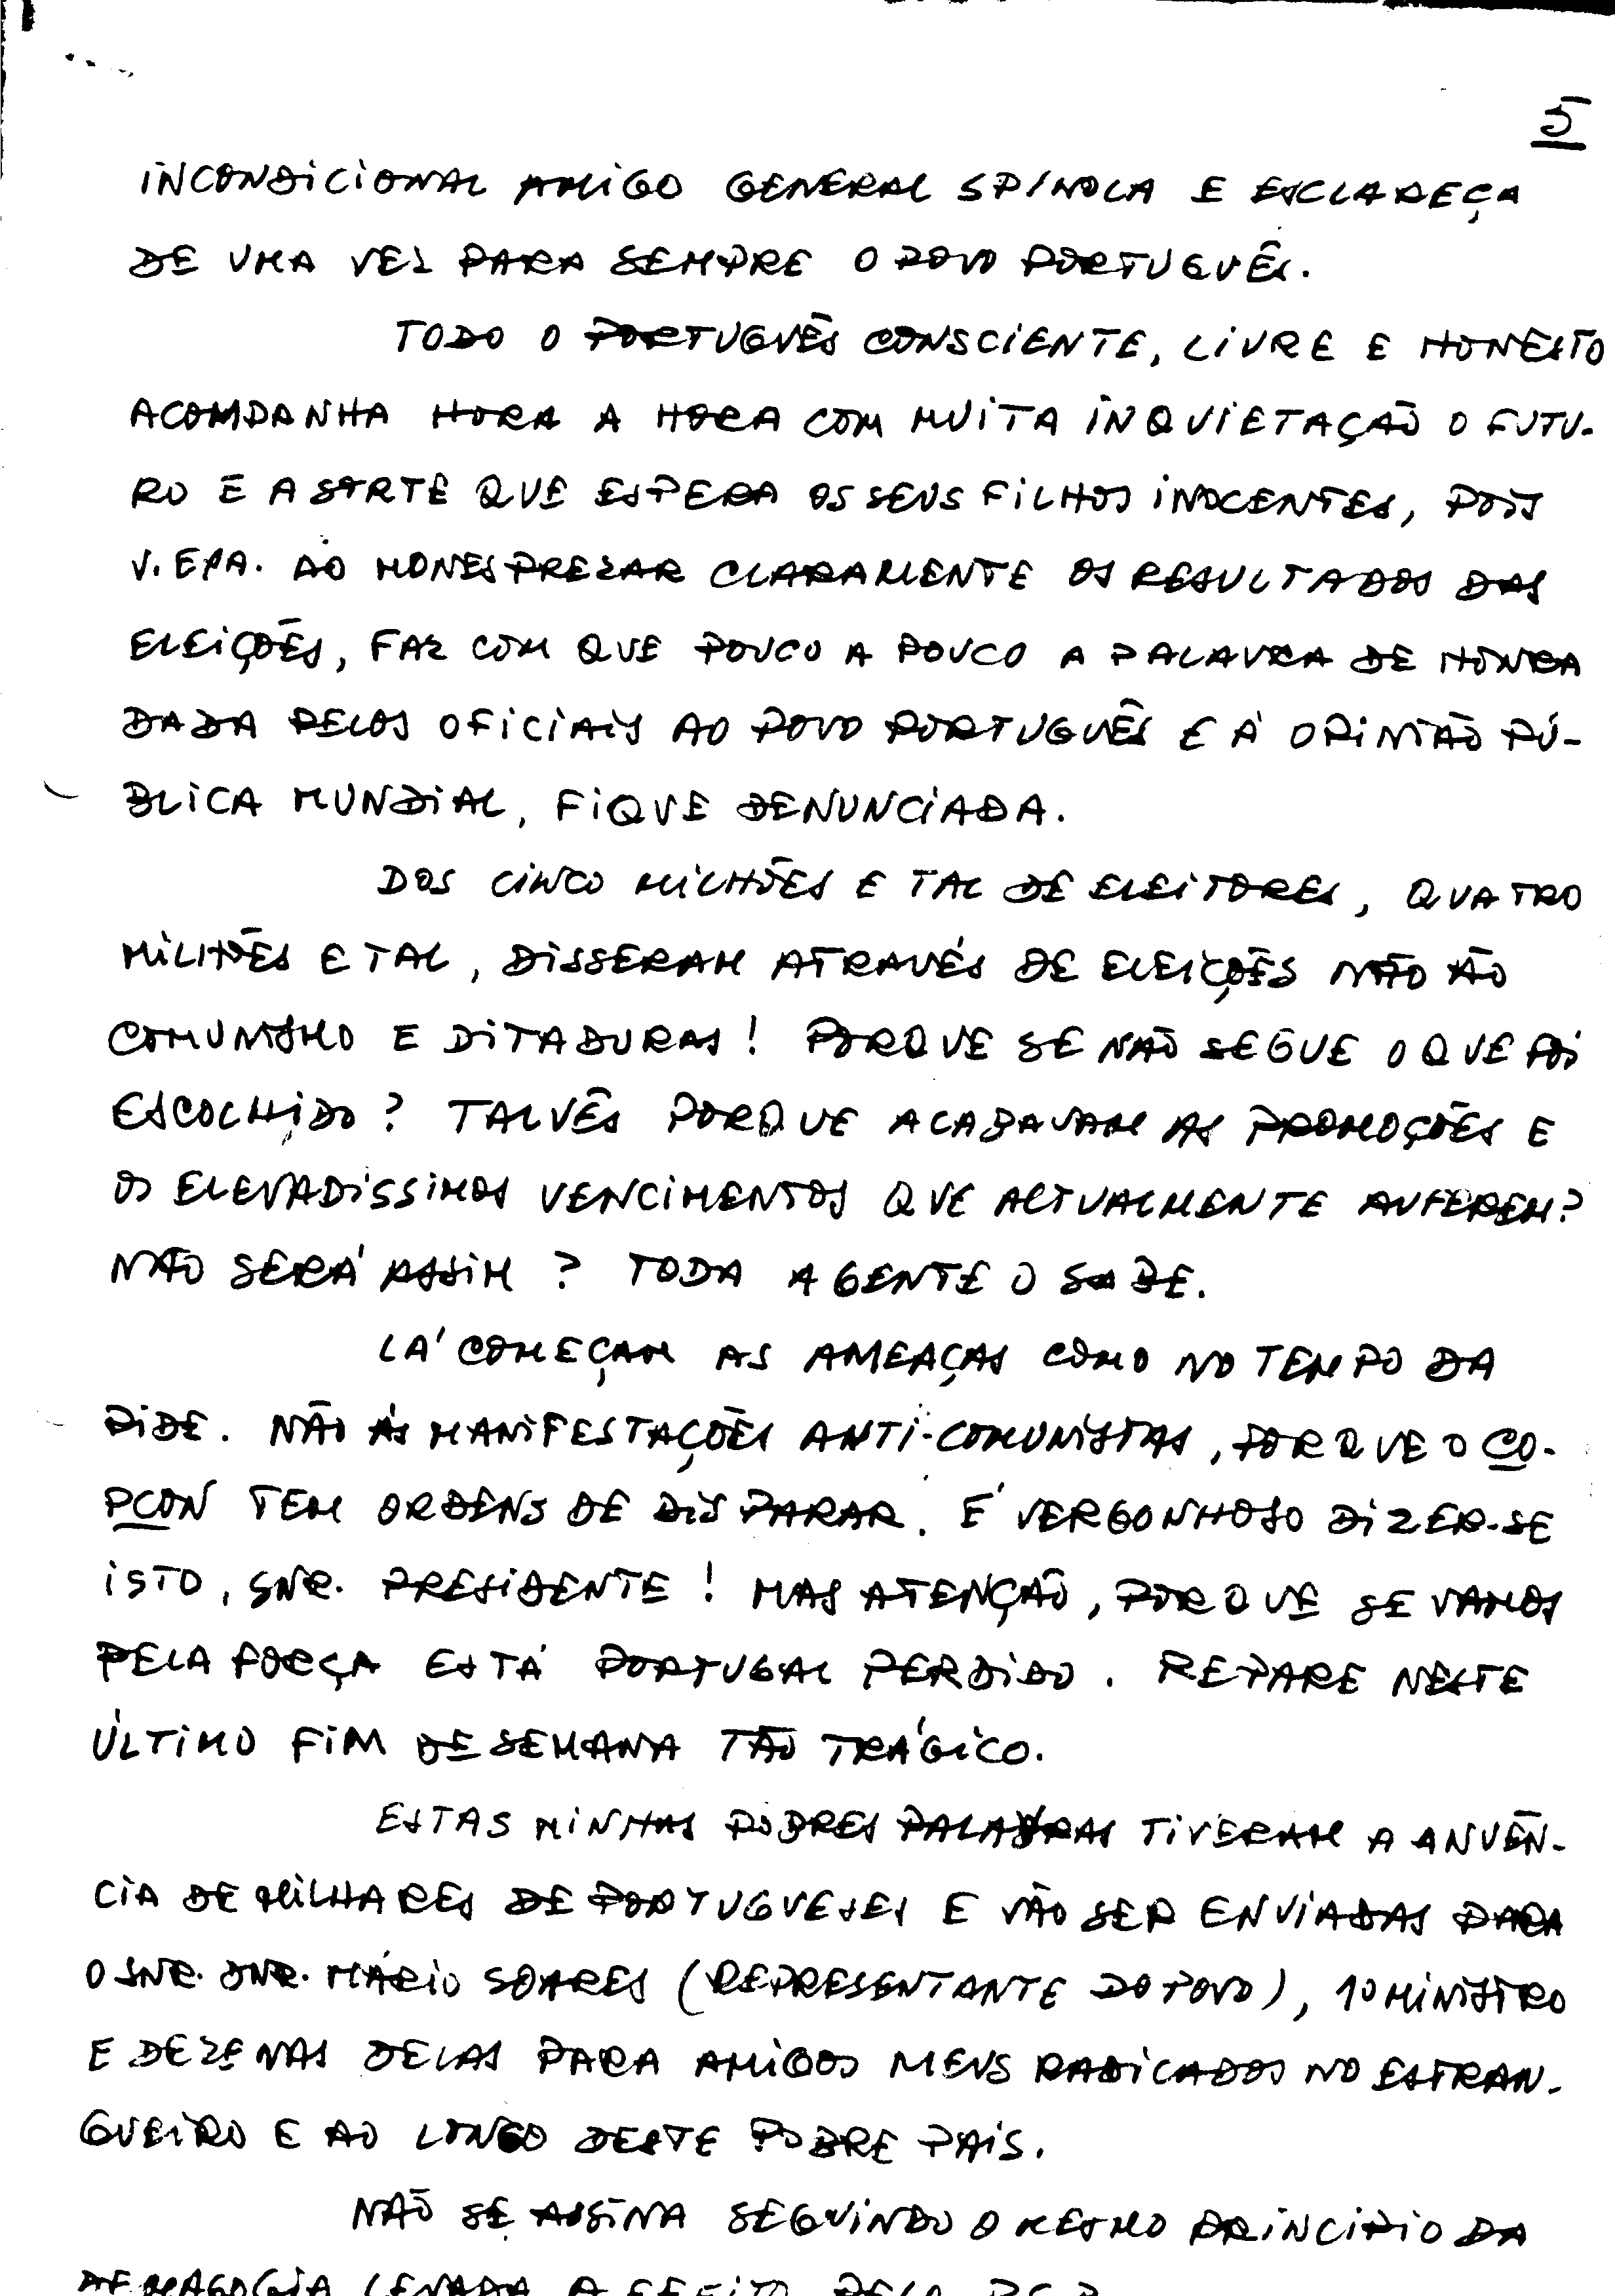 5
INCONDICIONAL AMIGO GENERAL SPINOLA E ESCLAREÇA
DE UMA VEZ PARA SEMPRE O POVO PORTUGUÊS.
TODO O PORTUGUÊS CONSCIENTE, LIVRE E HONESTO
ACOMPANHA HORA A HORA COM MUITA INQUIETAÇÃO O FUTU-
RO E A SORTE QUE ESPERA OS SEUS FILHOS INOCENTES, POIS
V. EXA. AO MONESPREZAR CLARAMENTE OS RESULTADOS DAS
ELEIÇÕES, FAZ COM QUE POUCO A POUCO A PALAVRA DE HONRA
DADA PELOS OFICIAIS AO POVO PORTUGUÊS E Á OPINIÃO PÚ-
BLICA MUNDIAL, FIQUE DENUNCIADA.
DOS CINCO MILHÕES E TAL DE ELEITORES, QUATRO
MILHÕES E TAL, DISSERAM ATRAVÉS DE ELEIÇÕES NÃO ÃO
COMUNISMO E DITADURAS! PORQUE SE NÃO SEGUE O QUE FOI
ESCOLHIDO? TALVÊS PORQUE ACABAVAM AS PROMOÇÕES E
OS ELEVADÍSSIMOS VENCIMENTOS QUE ACTUALMENTE AUFEREM?
NÃO SERÁ ASSIM? TODA A GENTE O SABE.
LÁ COMEÇAM AS AMEAÇAS COMO NO TEMPO DA
PIDE. NÃO ÁS MANIFESTAÇÕES ANTI-COMUNISTAS, PORQUE O CO-
PCON TEM ORDENS DE DISPARAR. É VERGONHOSO DIZER-SE
ISTO, SNR. PRESIDENTE! MAS ATENÇÃO, PORQUE SE VAMOS
PELA FORÇA ESTÁ PORTUGAL PERDIDO. REPARE NESTE
ÚLTIMO FIM DE SEMANA TÃO TRÁGICO.
ESTAS MINHAS POBRES PALAVRAS TIVERAM A ANUÊN-
CIA DE MILHARES DE PORTUGUESES E VÃO SER ENVIADAS PARA
O SNR. DNR. MÁRIO SOARES (REPRESENTANTE DO POVO), 1º MINISTRO
E DEZENAS DELAS PARA AMIGOS MEUS RADICADOS NO ESTRAN-
GUEIRO E AO LONGO DESTE POBRE PAÍS.
NÃO SE ASSINA SEGUINDO O MESMO PRINCIPIO DA
DEMAGOGIA LEVADA A EFEITO PELO